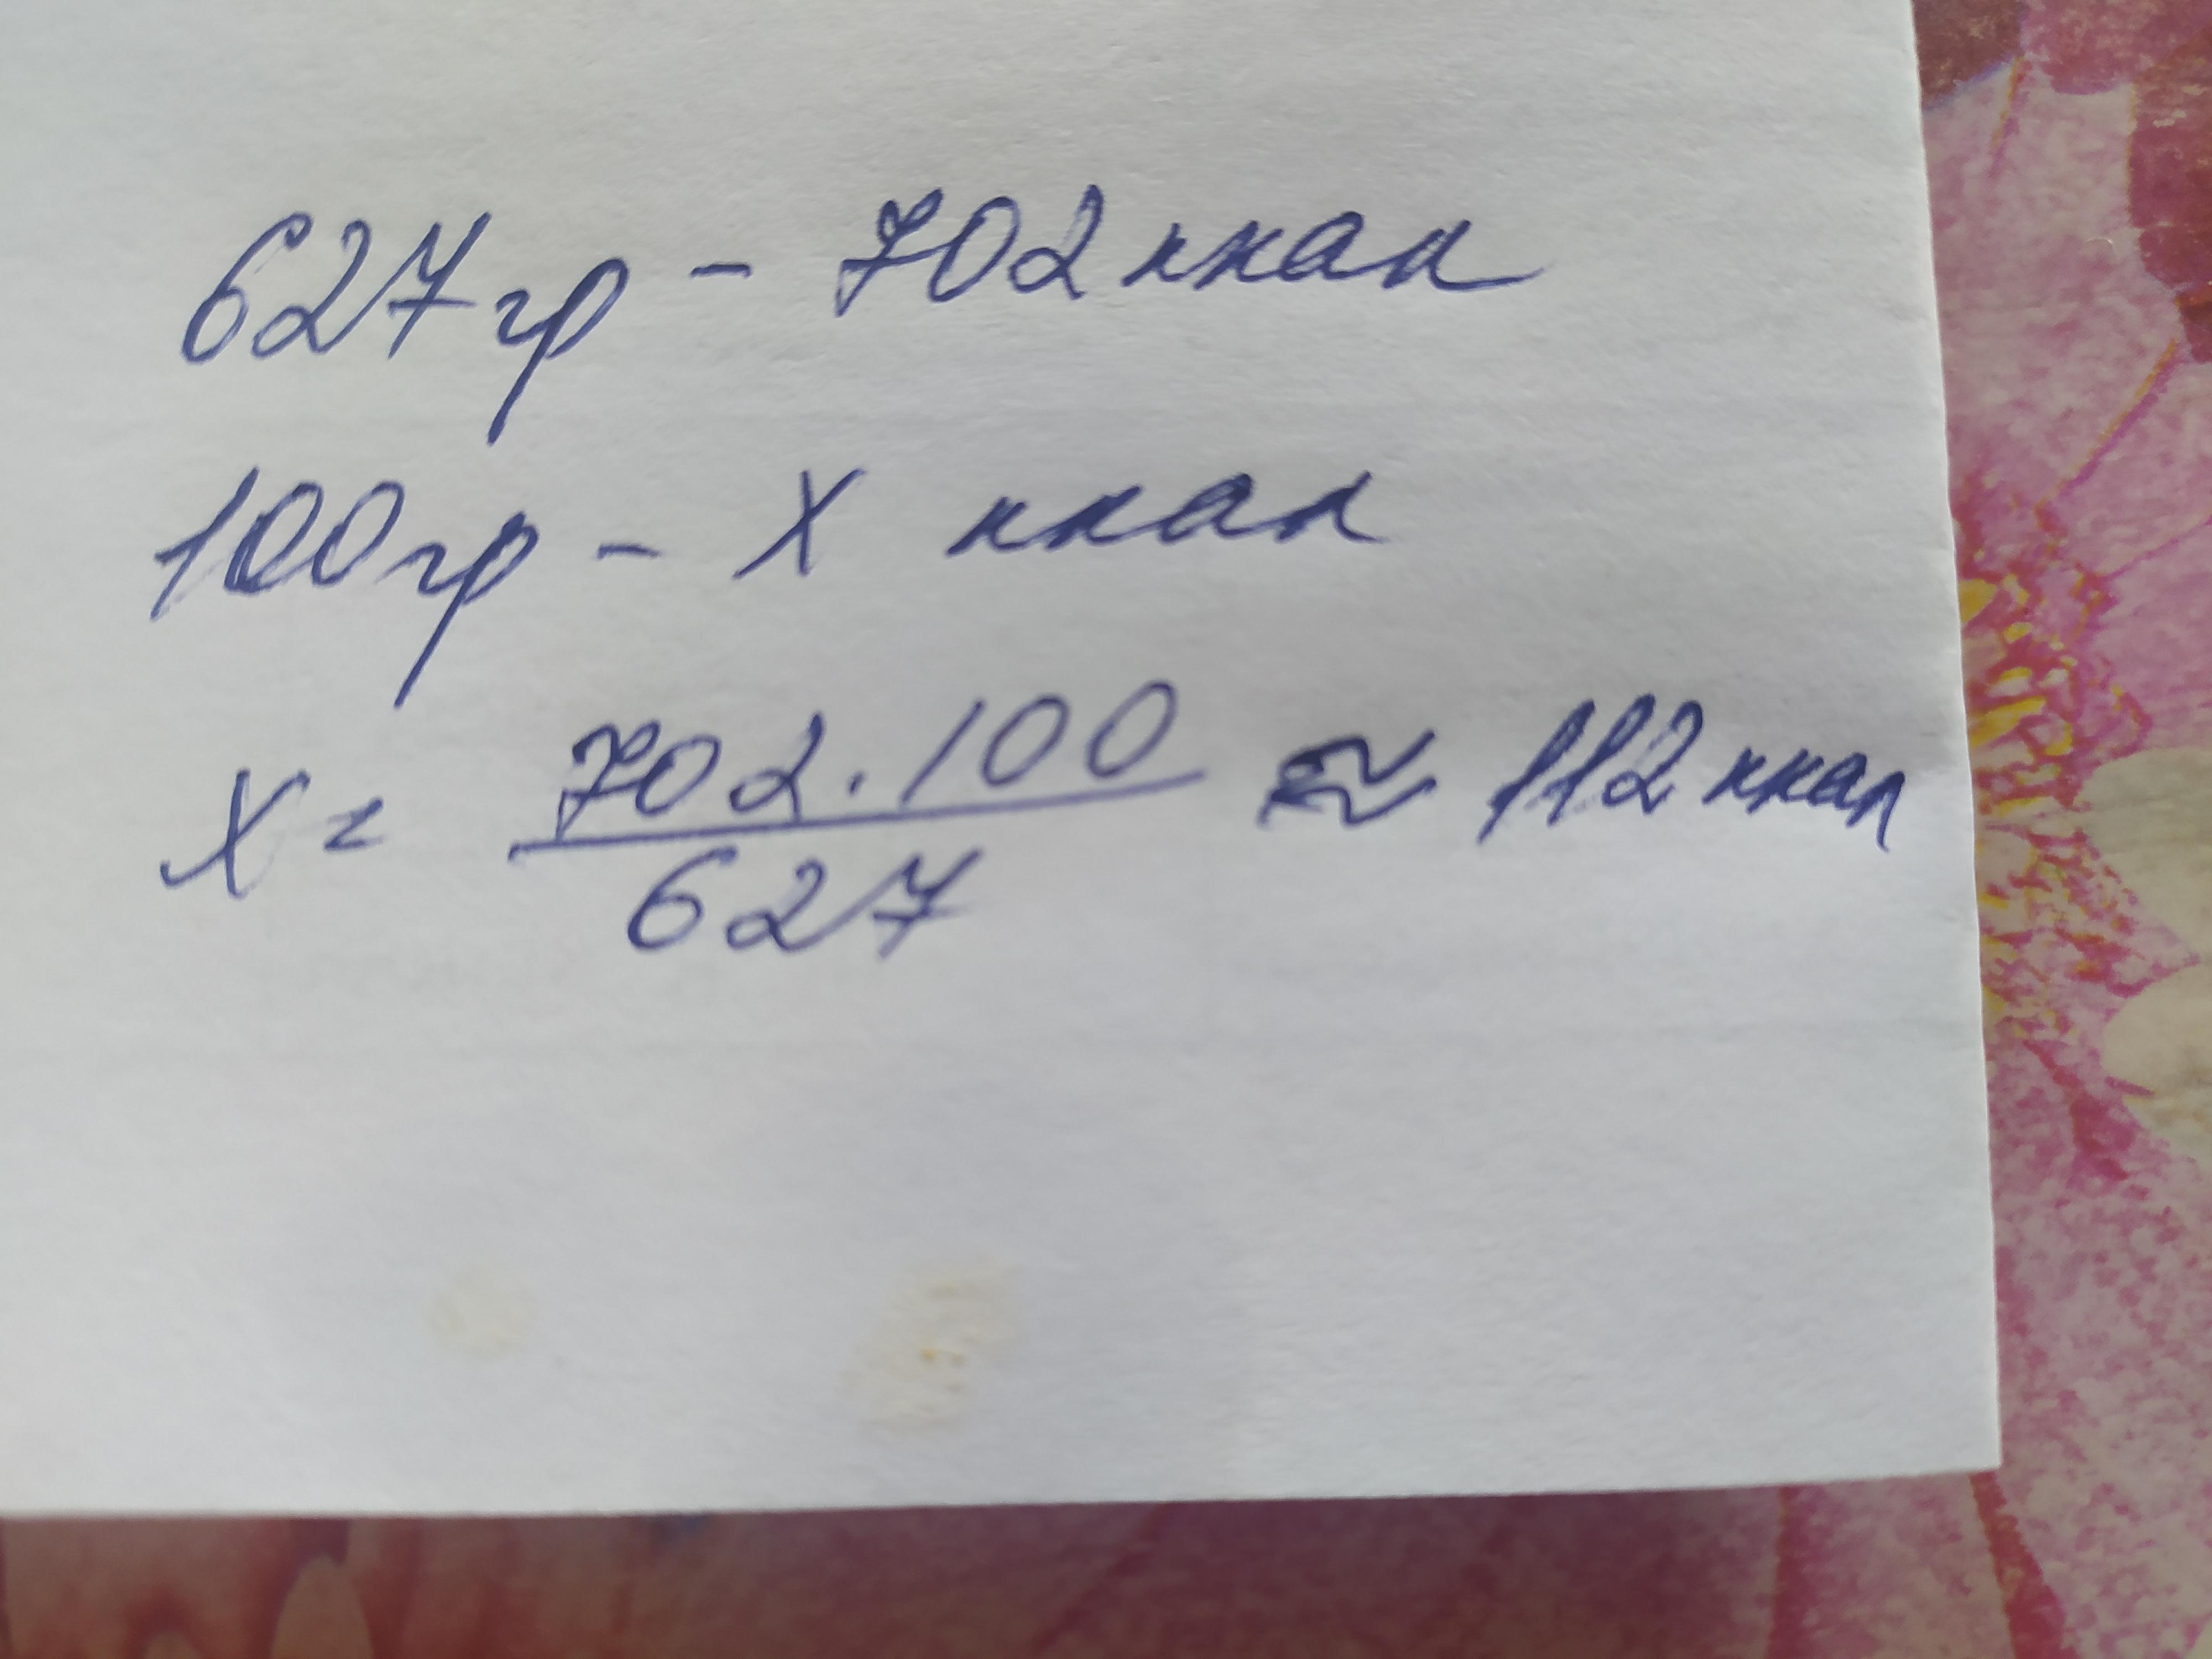 627гр - 702 ккал
100гр - х ккал
х = 702 · 100 / 627 ≈ 112 ккал